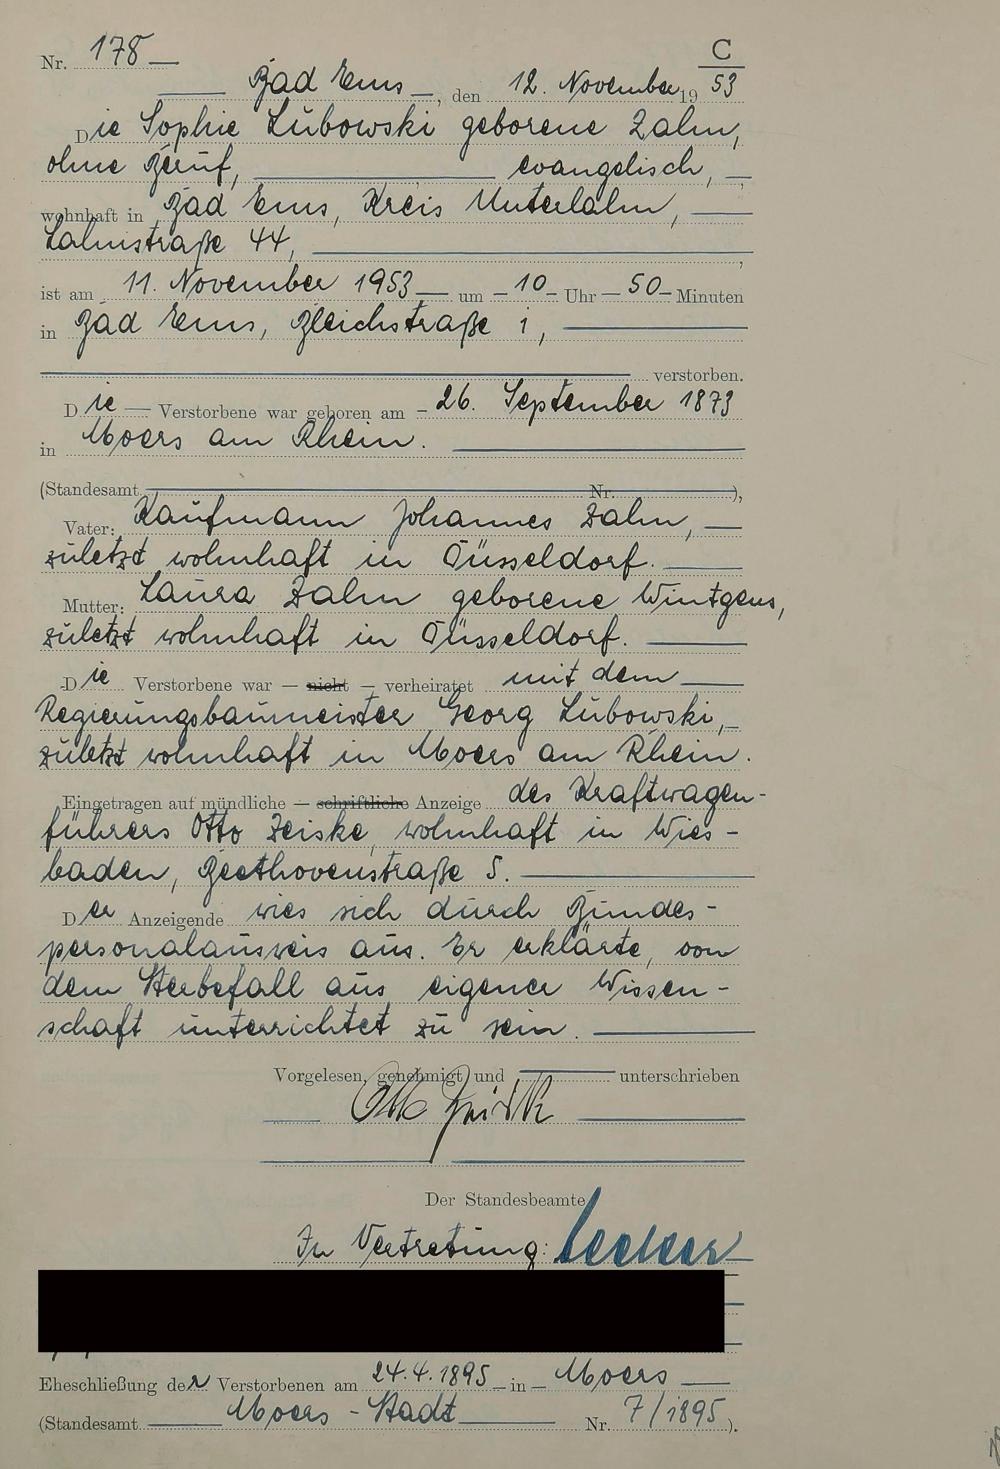 C
Nr. 178
Bad Ems, den 12. November 19 53
Die Sophie Lubowski geborene Zahn,
ohne Beruf, evangelisch,
wohnhaft in Bad Ems, Kreis Unterlahn,
Lahnstraße 44,
ist am 11. November 1953 um - 10 - Uhr - 50 - Minuten
in Bad Ems, Bleichstraße 1,
verstorben.
Die Verstorbene war geboren am - 26. September 1873
in Moers am Rhein.
(Standesamt Nr. ),
Vater: Kaufmann Johannes Zahn,
zuletzt wohnhaft in Düsseldorf.
Mutter: Laura Zahn geborene Wintgens,
zuletzt wohnhaft in Düsseldorf.
Die Verstorbene war — nicht — verheiratet mit dem
Regierungsbaumeister Georg Lubowski,
zuletzt wohnhaft in Moers am Rhein.
Eingetragen auf mündliche — schriftliche Anzeige des Kraftwagen-
führers Otto Zeiske, wohnhaft in Wies-
baden, Beethovenstraße 5.
Der Anzeigende wies sich durch Bundes-
personalausweis aus. Er erklärte, von
dem Sterbefall aus eigener Wissen-
schaft unterrichtet zu sein.
Vorgelesen, genehmigt und unterschrieben
Otto Zeiske
Der Standesbeamte
In Vertretung:
Eheschließung der Verstorbenen am 24.4.1895 - in - Moers
(Standesamt Moers - Stadt Nr. 7/1895).